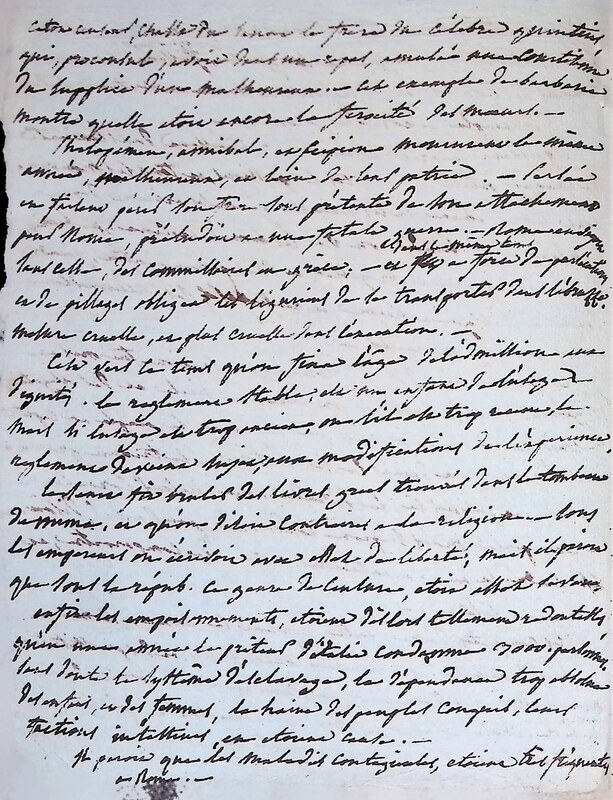 caton censeur, chassa du senat le frere du célebre quintius
qui, proconsul, avoit dans un repas, immolé une courtisane
du supplice d'un malheureux. — cet exemple de barbarie
montre quelle etoit encore la ferocité des mœurs. —
Philopemen, annibal, et scipion moururent la même
année, malheureux, et loin de leur patrie. — Persée
en faisant périr son frere sous prétexte de son attachement
pour Rome, prélude à une fatale guerre. — Rome envoye
sans cesse, des commissaires en grèce; — et à force de perfidies
dans le même tems
et de pillages obligea les liguriens de se transporter dans
mesure cruelle, et plus cruelle dans l'execution. —
C'est vers ce tems qu'on fixa l'âge de l'admission aux
dignités. le reglement stable, est un enfant de l'usage
mais si l'usage est trop ancien, ou s'il est trop recent le
reglement devient sujet aux modifications de l'experience
le senat fit bruler des livres grecs trouvés dans le tombeau
de numa, et qu'on disoit contraires à la religion. — sous
les empereurs on écrivoit avec assez de liberté, mais il paroit
que sous la répub. ce genre de censure, etoit assez severe,
enfin les empoisonnements, etoient dès lors tellement redoutables
qu'en une année le préteur d'italie condamna 3000 personnes
sans doute le systême d'esclavage, la dépendance trop absolue
des enfans, et des femmes, la haine des peuples conquis, leurs
factions intestines, en etoient cause. —
il paroit que les maladies contagieuses, etoient très fréquentes
à Rome. —